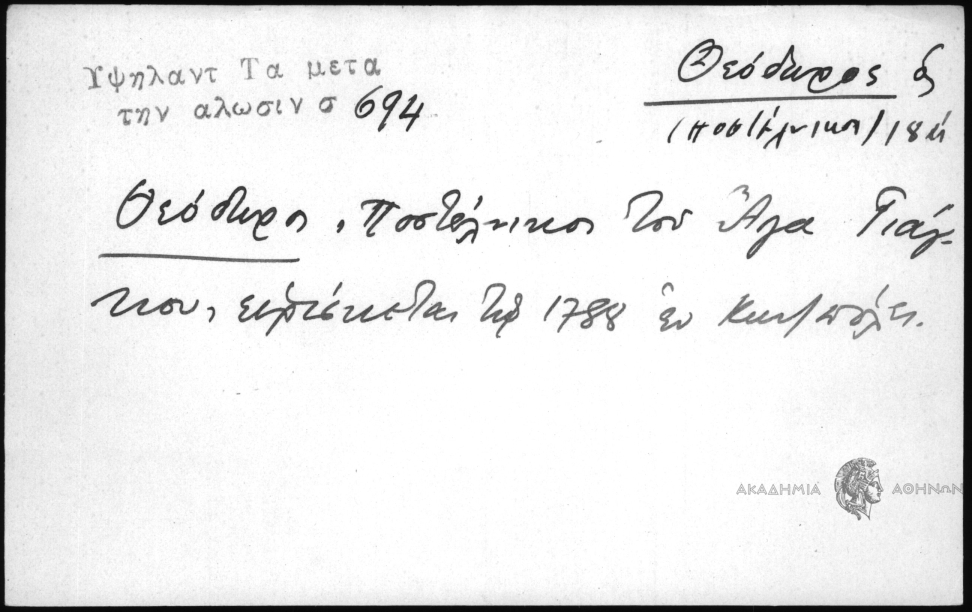 Υψηλαντ Τα μετα
την αλωσιν σ 694
Θεόδωρος
(ποστέλνικος) 18
Θεόδωρος, ποστέλνικος τοῦ Ἄγα Γιάγ-
κου, εὑρίσκεται τῷ 1788 ἐν Κων/πόλει.
ΑΚΑΔΗΜΙΑ ΑΘΗΝΩΝ